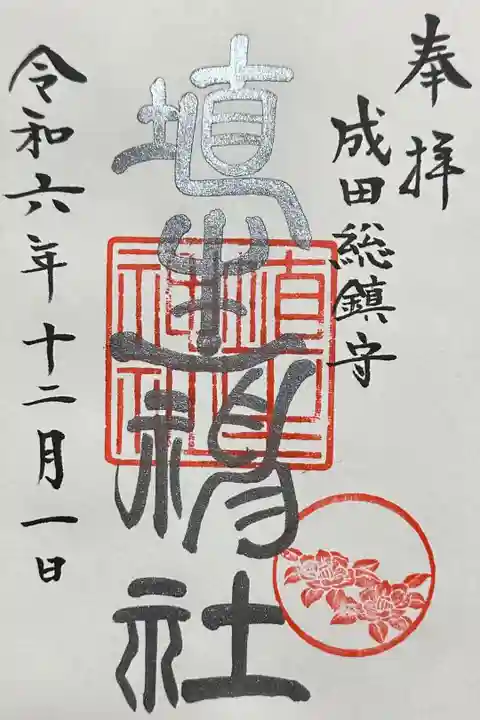 奉拝
成田総鎮守
埴生神社
埴生
神社
令和六年十二月一日